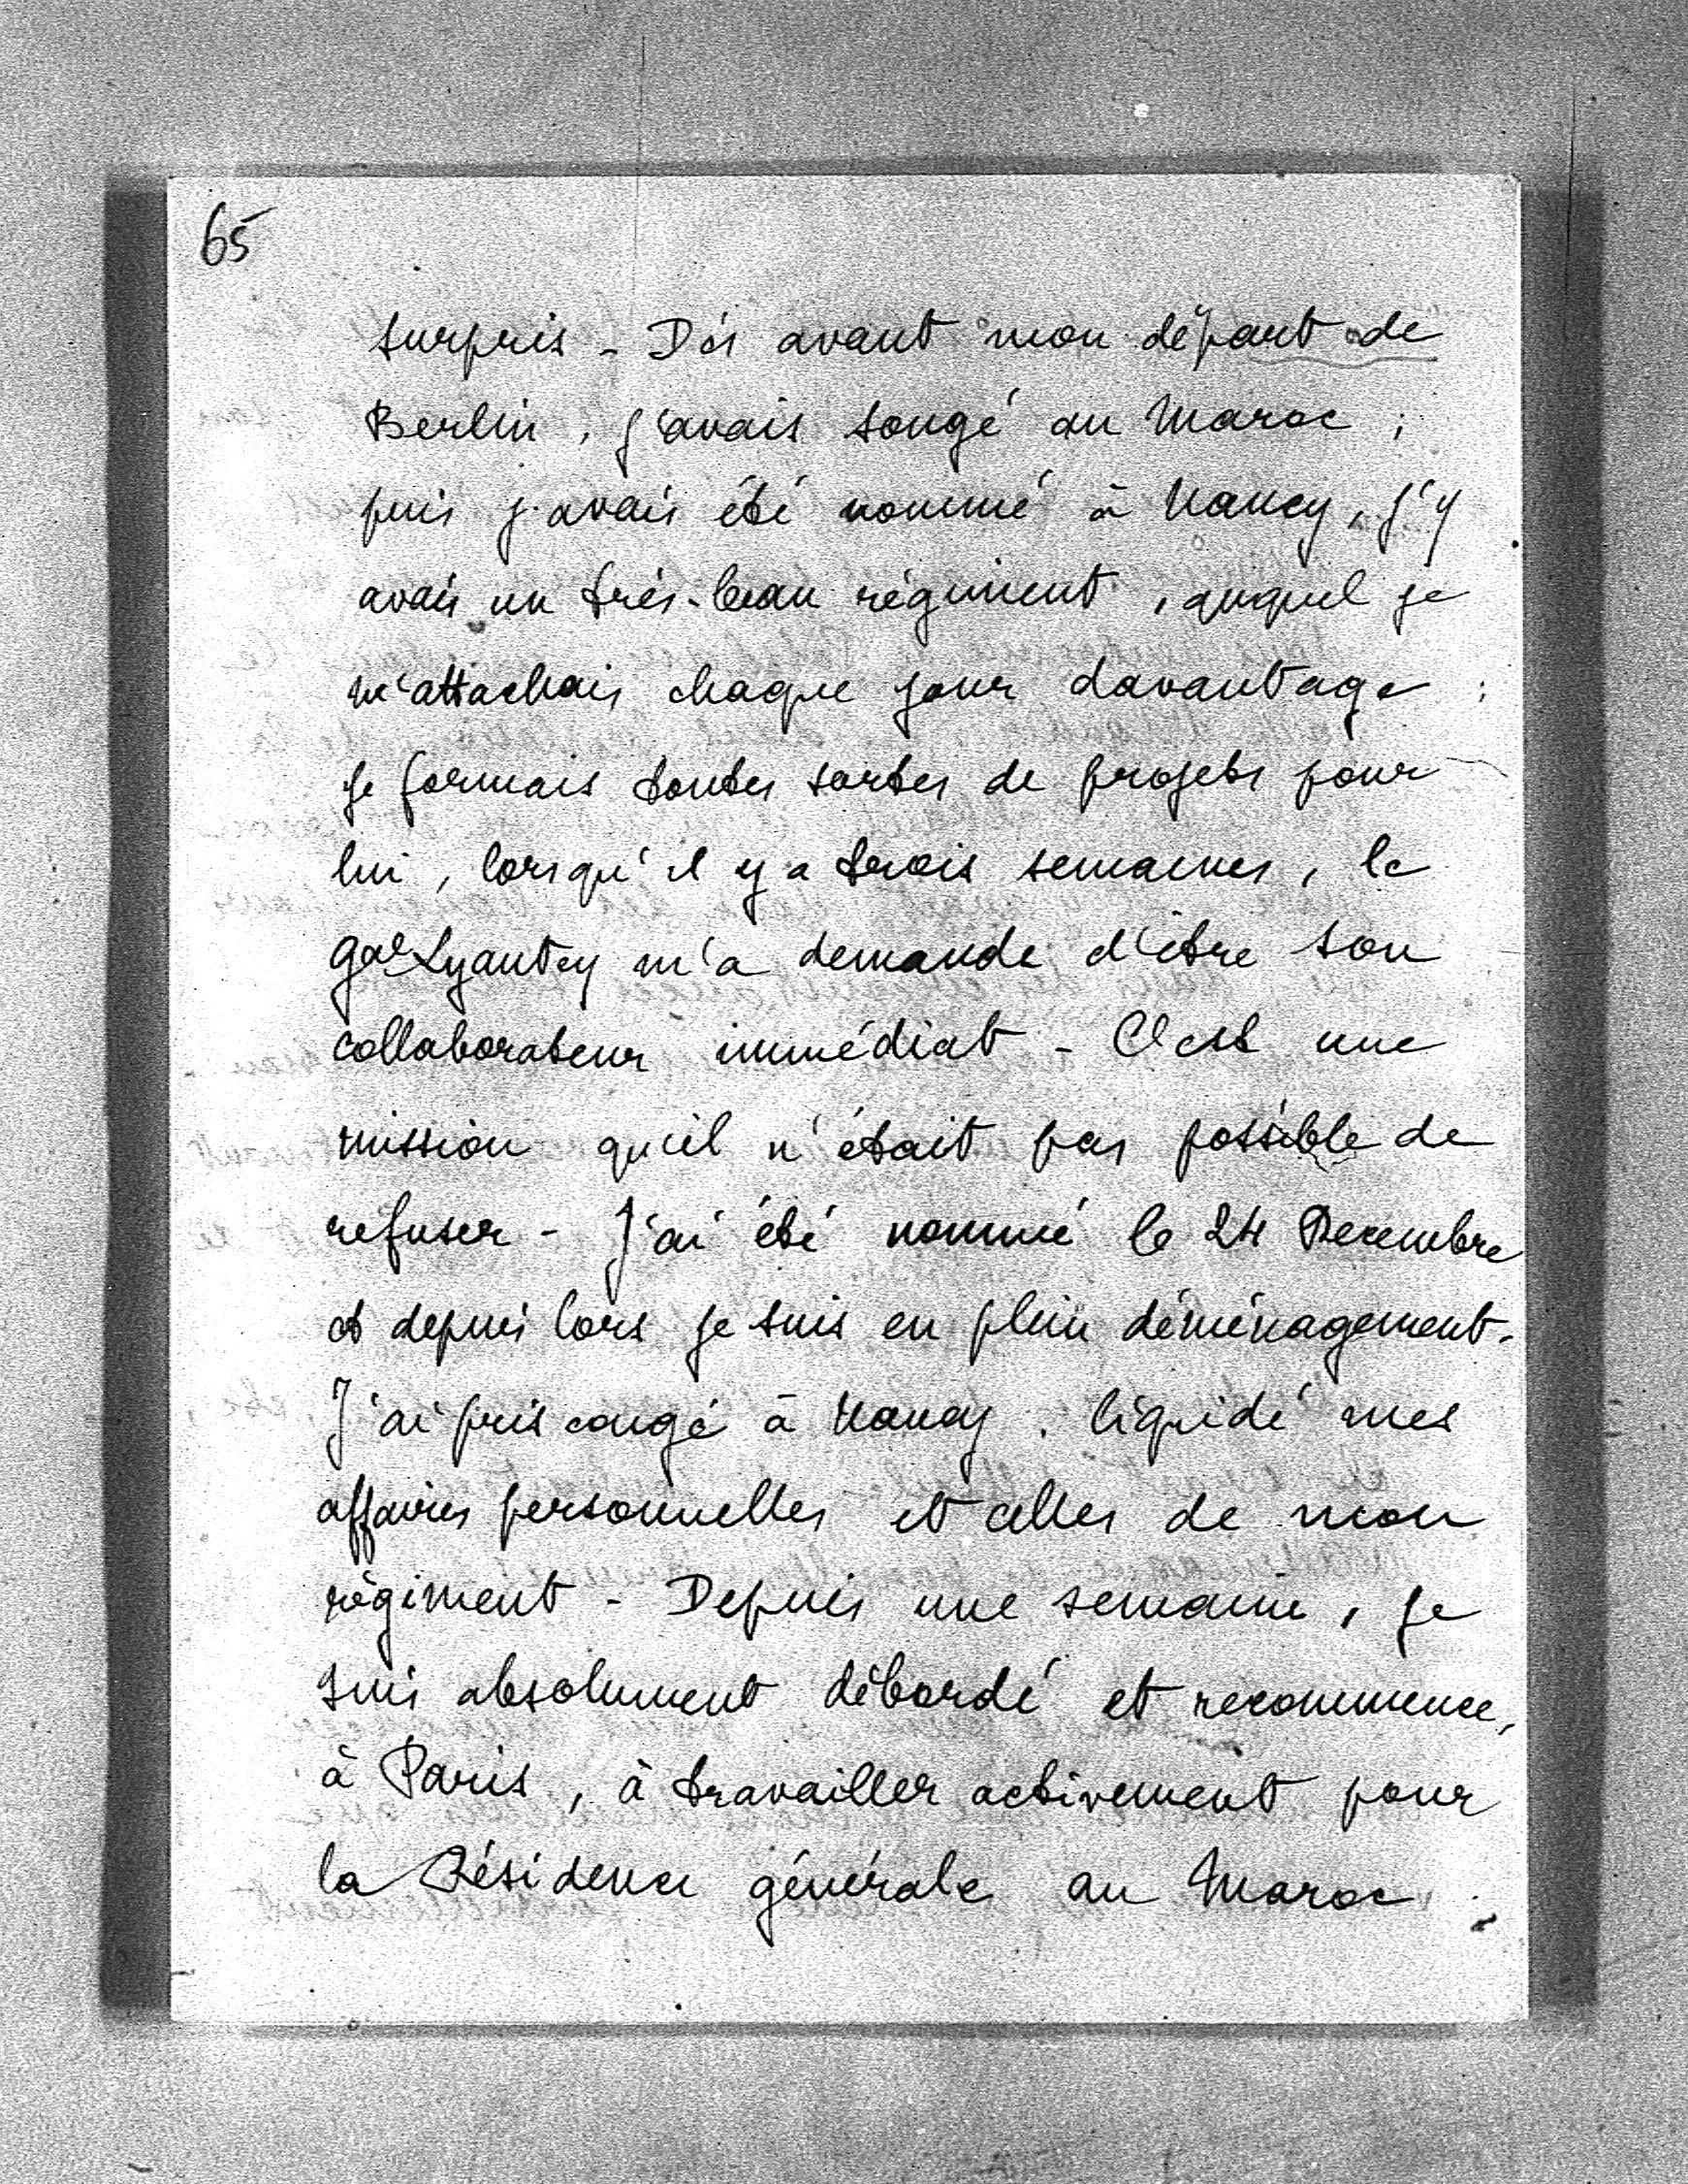 65
surpris - Dès avant mon départ de
Berlin, j'avais songé au Maroc ;
puis j'avais été nommé à Nancy, j'y
avais un très-beau régiment, auquel je
m'attachais chaque jour davantage ;
je formais toutes sortes de projets pour
lui, lorsqu'il y a trois semaines, le
Gal Lyautey m'a demandé d'être son
collaborateur immédiat - C'est une
mission qu'il n'était pas possible de
refuser - J'ai été nommé le 24 Decembre
et depuis lors je suis en plein déménagement.
J'ai pris congé à Nancy, liquidé mes
affaires personnelles et celles de mon
régiment - Depuis une semaine, je
suis absolument débordé et recommence,
à Paris, à travailler activement pour
la Résidence générale au Maroc.